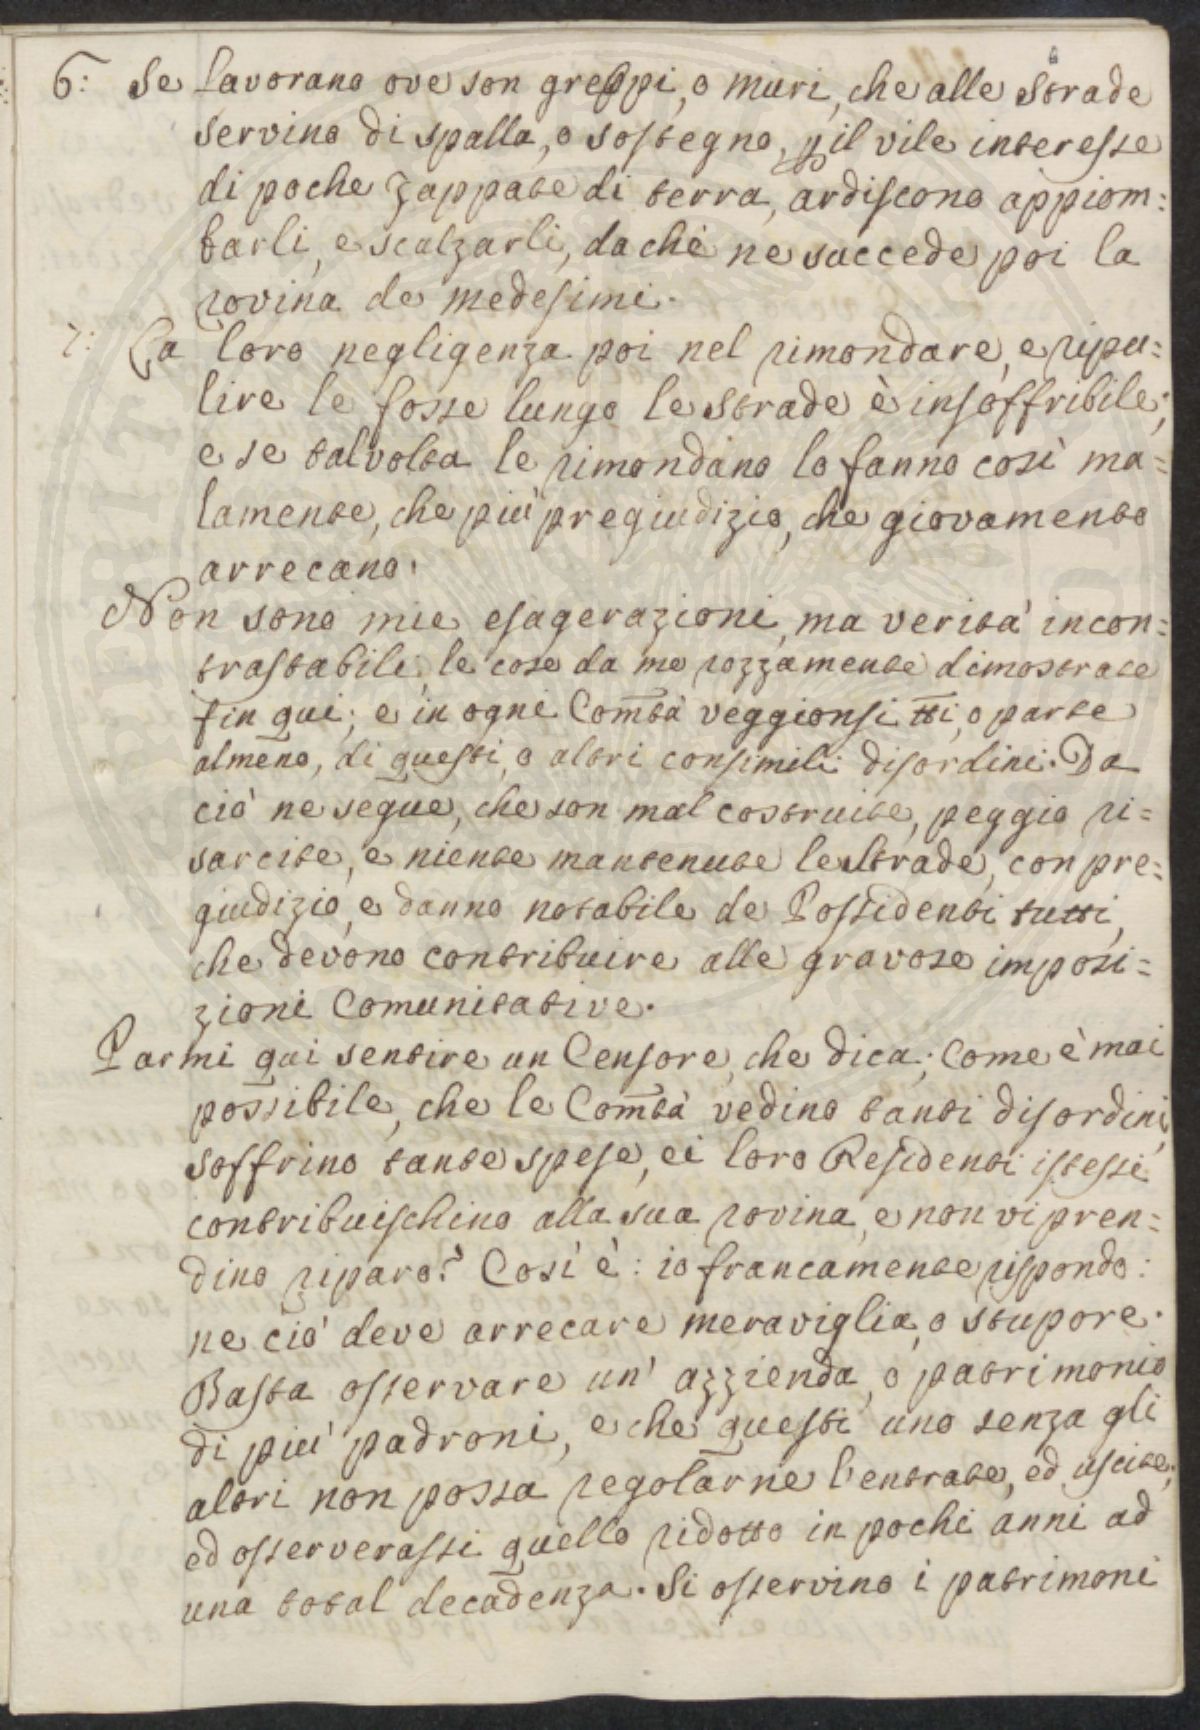 6: Se lavorano ove son greppi, o muri, che alle Strade
servino di spalla, o sostegno, p il vile interesse
di poche zappate di terra, ardiscono appiom=
barli, e scalzarli, dachè ne succede poi la
rovina de medesimi.
7: La loro negligenza poi nel rimondare, e ripu=
lire le fosse lungo le Strade è insoffribile;
e se talvolta le rimondano lo fanno così ma=
lamente, che più pregiudizio, che giovamento
arrecano.
Non sono mie esagerazioni, ma verità incon=
trastabili le cose da me rozzamente dimostrate
fin qui; e in ogni Com̃tà veggionsi tt̃i, o parte
almeno, di questi, o altri consimili disordini. Da
ciò ne segue, che son mal costruite, peggio ri=
sarcite, e niente mantenute le Strade, con pre=
giudizio, e danno notabile de Possidenti tutti,
che devono contribuire alle gravose imposi=
zioni Comunitative.
Parmi qui sentire un Censore, che dica; Come è mai
possibile, che le Com̃tà vedino tanti disordini,
soffrino tante spese, ei loro Residenti istessi
contribuischino alla sua rovina, e non vi pren=
dino riparo? Così è: io francamente rispondo:
ne ciò deve arrecare meraviglia, o stupore.
Basta osservare un' azzienda, o patrimonio
di più padroni, e che questi uno senza gli
altri non possa regolarne l'entrate, ed uscite;
ed osserverassi quello ridotto in pochi anni ad
una total decadenza. Si osservino i patrimoni